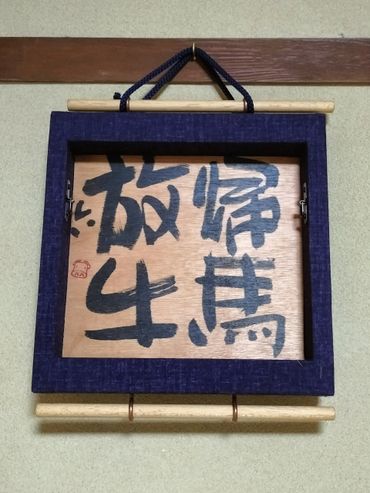 帰馬
放牛